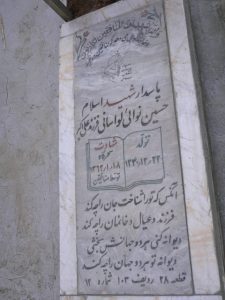 پاسدار شهید اسلام
حسین نوائی لواسانی فرزند علی اکبر
تولد
۱۳۴۰،۱۲،۲۲
شهادت
۱۳۶۲،۱،۱۸
آنکس که تو را شناخت جان را چه کند
فرزند و عیال و خانمان را چه کند
دیوانه کنی هر دو جهانش بخشی
دیوانه تو هر دو جهان را چه کند
قطعه ۲۸ ردیف ۱۰۳ شماره ۱۲